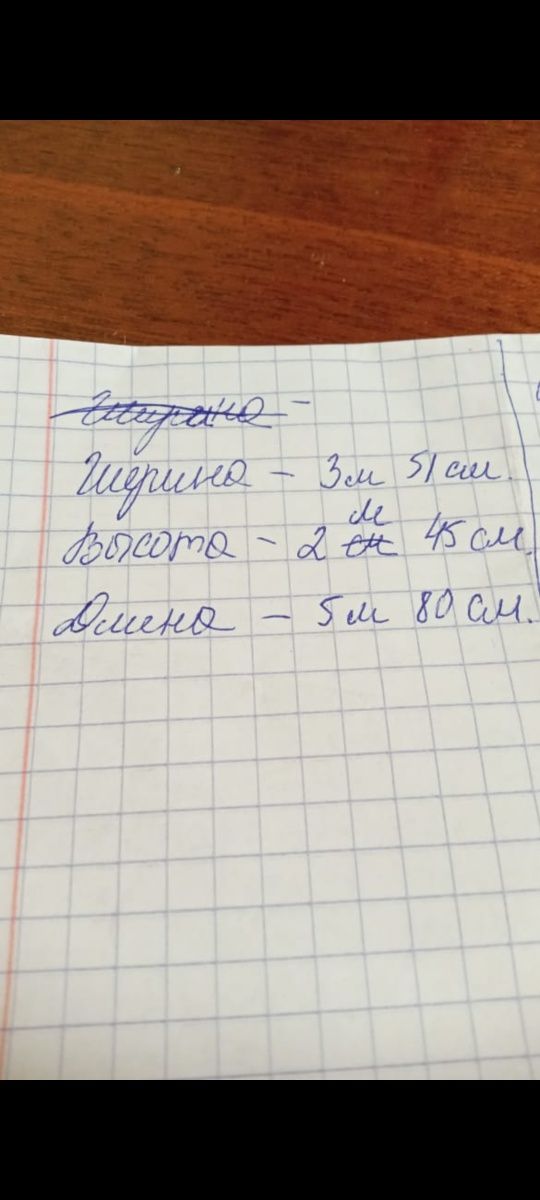 Ширина -
Ширина - 3м 51 см.
Высота - 2 м 45 см.
Длина - 5м 80 см.